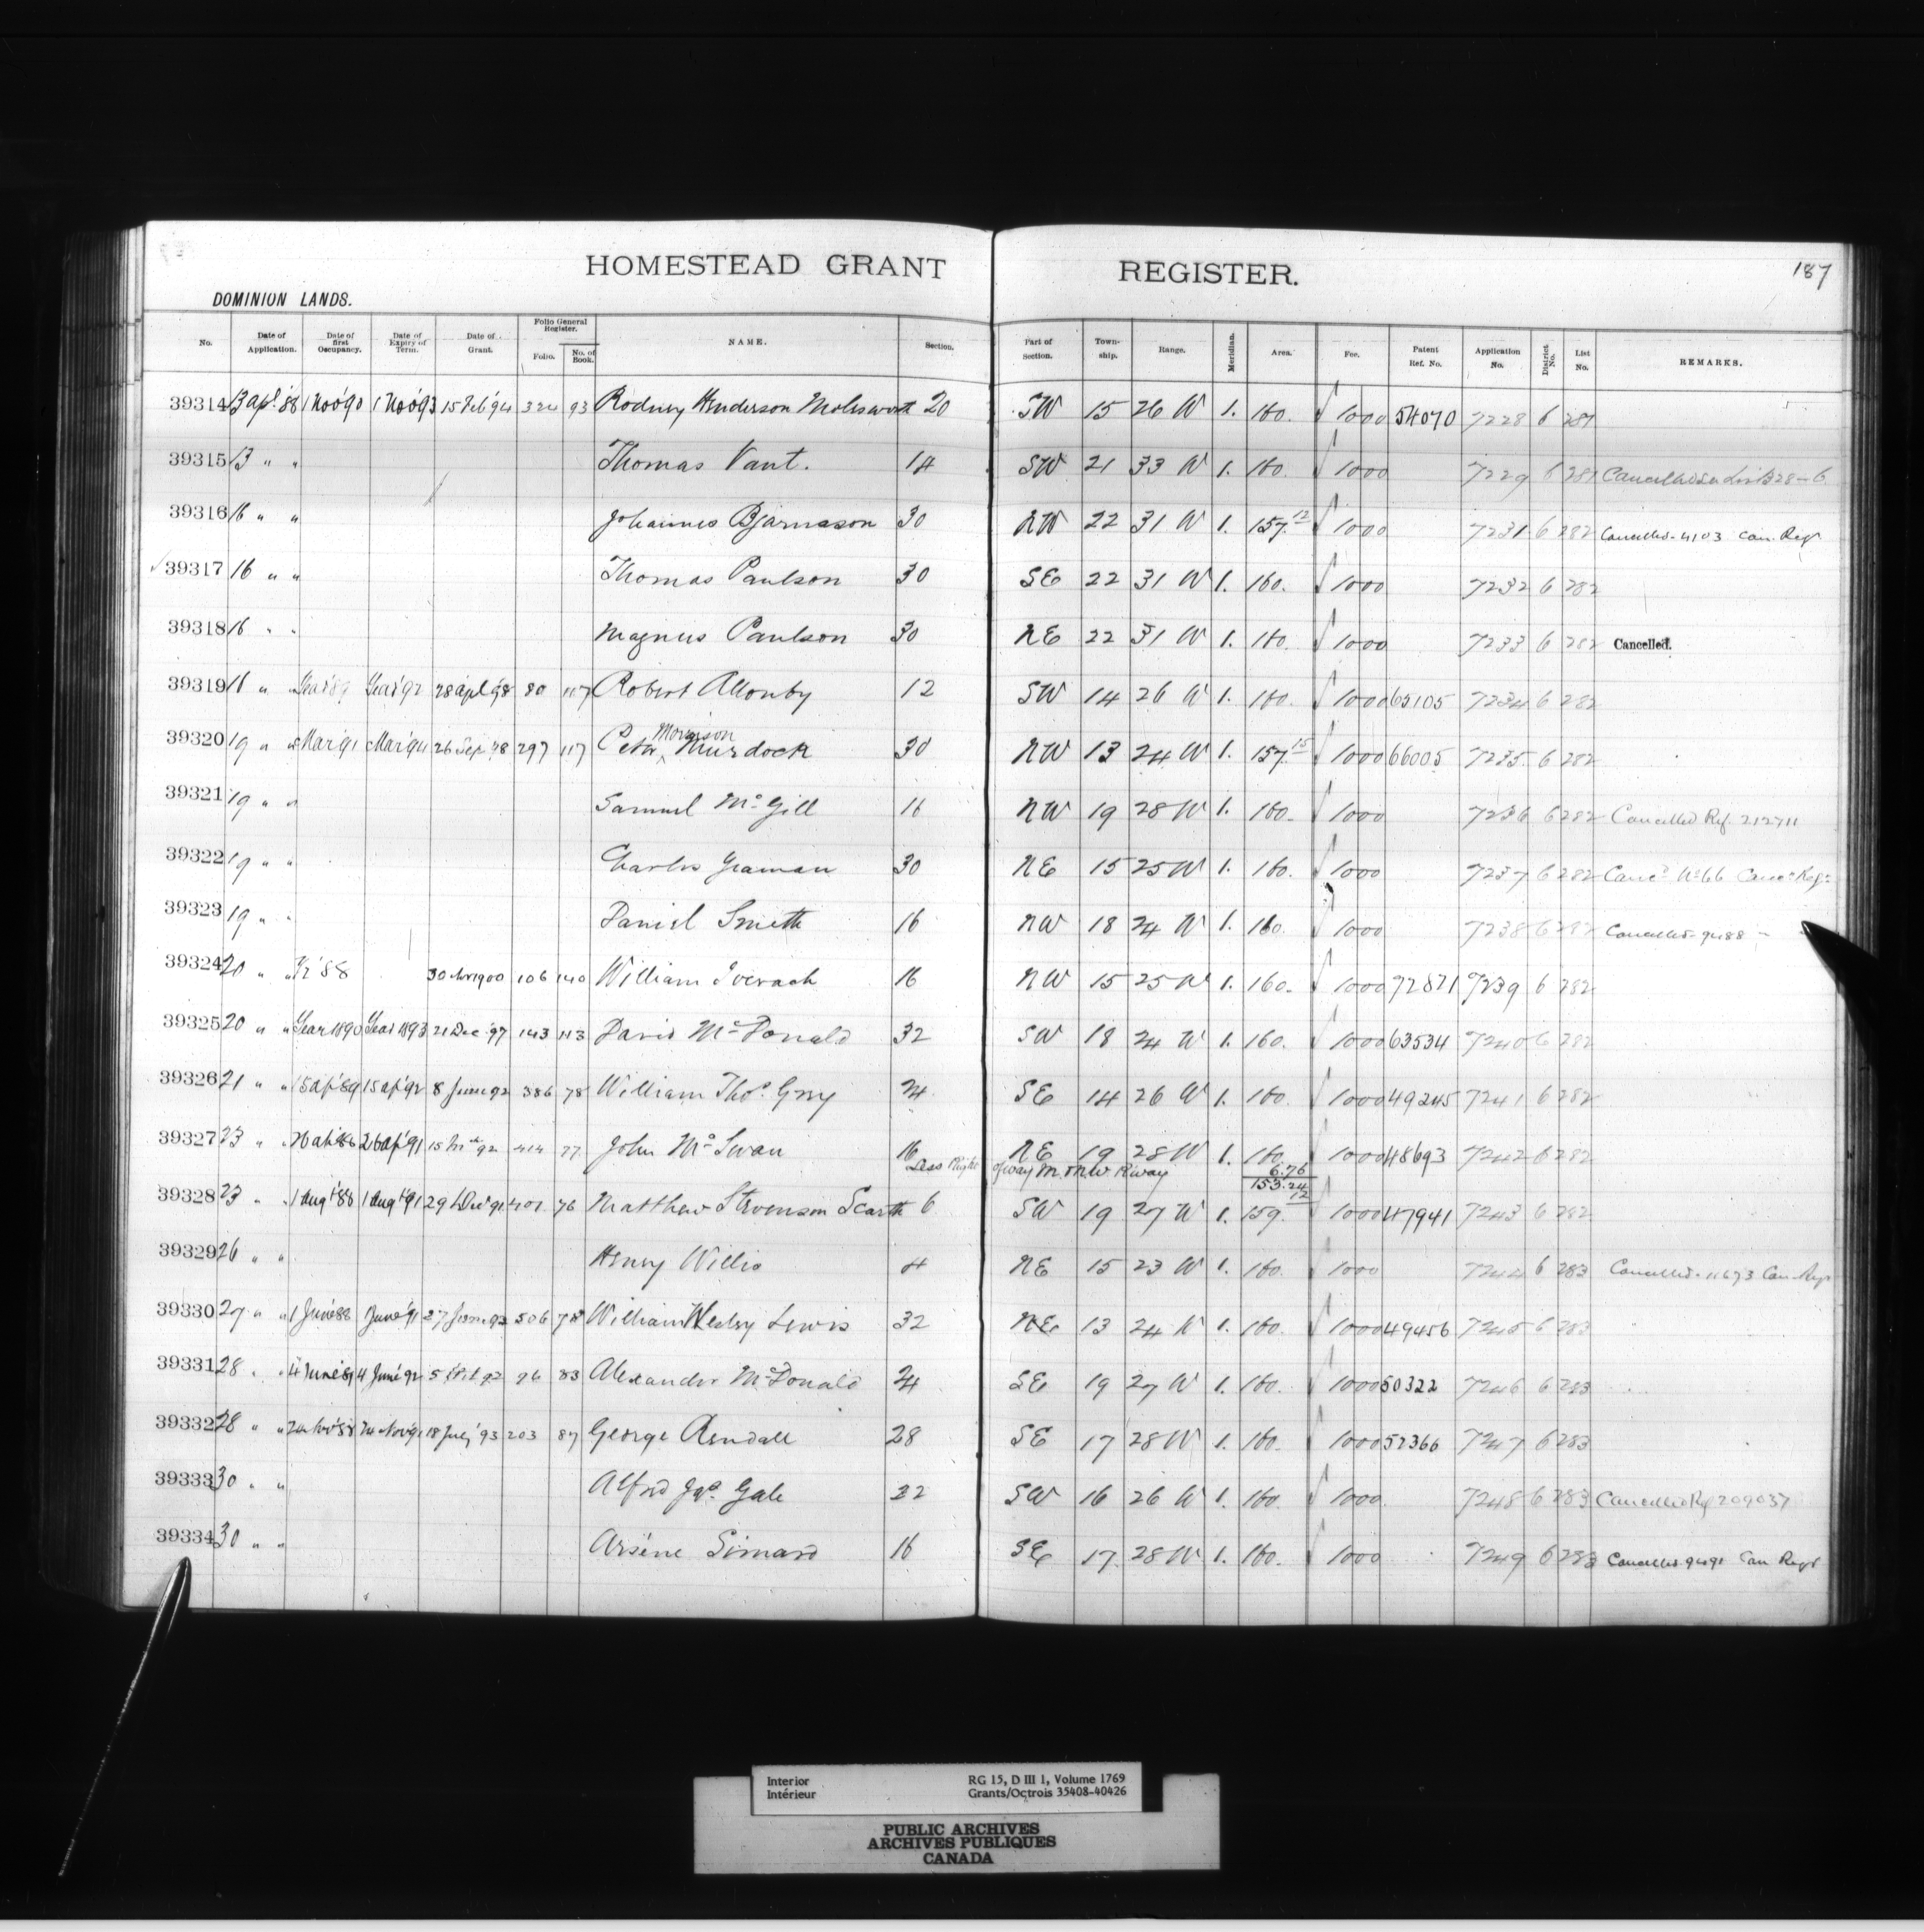 HOMESTEAD GRANT REGISTER. 187
DOMINION LANDS.
No. Date of Application. Date of first Occupancy. Date of Expiry of Term. Date of Grant. Folio General Register. Folio. No. of Book. NAME. Section. Part of Section. Township. Range. Meridian. Area. Fee. Patent Ref. No. Application No. District No. List No. REMARKS.
39314 13 apl '88 1 Nov '90 1 Nov '93 15 Feb '94 324 93 Rodney Henderson Molesworth 20 SW 15 26 W 1. 160. 10 00 54070 7228 6 281
39315 13 " " Thomas Vant. 14 SW 21 33 W 1. 160. 10 00 7229 6 281 Cancelled
39316 16 " " Johannes Bjarnason 30 NW 22 31 W 1. 157.12 10 00 7231 6 282 Cancelled - 4103 Can. Regr
39317 16 " " Thomas Paulson 30 SE 22 31 W 1. 160. 10 00 7232 6 282
39318 16 " " Magnus Paulson 30 NE 22 31 W 1. 160. 10 00 7233 6 282 Cancelled.
39319 16 " " Year '89 Year '92 28 apl '98 80 117 Robert Allonby 12 SW 14 26 W 1. 160. 10 00 65105 7234 6 282
39320 19 " " Mar '91 Mar '94 26 Sep '98 297 117 Peter Morrison Murdock 30 NW 13 24 W 1. 157.15 10 00 66005 7235 6 282
39321 19 " " Samuel McGill 16 NW 19 28 W 1. 160. 10 00 7236 6 282 Cancelled Ref. 212711
39322 19 " " Charles Yeaman 30 NE 15 25 W 1. 160. 10 00 7237 6 282 Cancd No 66 Canc. Regr
39323 19 " " Daniel Smith 16 NW 18 24 W 1. 160. 10 00 7238 6 282 Cancelled - 9488
39324 20 " " '88 30 Nov 1900 106 140 William Iverach 16 NW 15 25 W 1. 160. 10 00 72871 7239 6 282
39325 20 " " Year 1890 Year 1893 21 Dec '97 143 113 David McDonald 32 SW 18 24 W 1. 160. 10 00 63534 7240 6 282
39326 21 " " 15 ap '89 15 ap '92 8 June 92 386 78 William Thos. Grey 24 SE 14 26 W 1. 160. 10 00 49245 7241 6 282
39327 23 " " 26 ap '88 26 ap '91 15 Mch 92 414 77 John McSwan 16 NE 19 28 W 1. 160. 10 00 48693 7242 6 282
Less Right of way M. & N.W. R'way 6.76
153.24
39328 23 " 1 Aug '88 1 Aug '91 29 Dec 91 401 76 Matthew Stevenson Scarth 6 SW 19 27 W 1. 159.12 10 00 47941 7243 6 282
39329 26 " " Henry Willis 4 NE 15 23 W 1. 160. 10 00 7244 6 283 Cancelled - 11673 Can. Regr
39330 27 " " 1 June 88 1 June '91 27 June 92 506 78 William Wesley Lewis 32 NE 13 24 W 1. 160. 10 00 49456 7245 6 283
39331 28 " " 4 June '89 4 June '92 5 Oct 92 96 83 Alexander McDonald 24 SE 19 27 W 1. 160. 10 00 50322 7246 6 283
39332 28 " " 24 Nov '88 24 Nov '91 18 July '93 203 87 George Rendall 28 SE 17 28 W 1. 160. 10 00 52366 7247 6 283
39333 30 " " Alfred Jas. Gale 22 SW 16 26 W 1. 160. 10 00 7248 6 283 Cancelled Rf 209037
39334 30 " " Arsène Simard 16 SE 17 28 W 1. 160. 10 00 7249 6 283 Cancelled 9491 Can Regr
Interior RG 15, D III 1, Volume 1769
Intérieur Grants/Octrois 35408-40426
PUBLIC ARCHIVES
ARCHIVES PUBLIQUES
CANADA